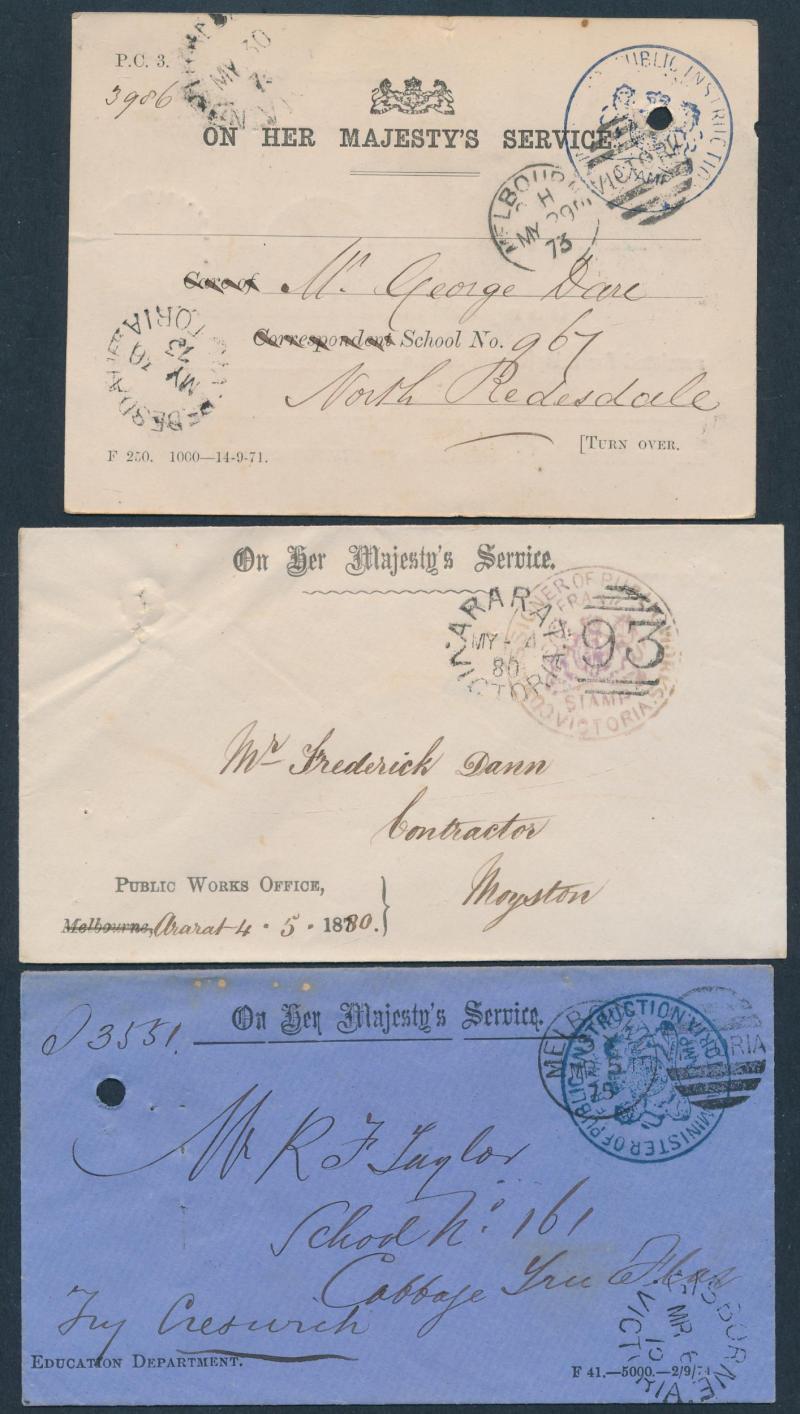 P.C. 3.
3986
ON HER MAJESTY'S SERVICE.
PUBLIC INSTRUCTIO
VICTORI
MELBOURN
H
MY 29
73
MY 30
Care of Mr. George Dare
Correspondent School No. 967
North Redesdale
MY 30
73
TORIA
[TURN OVER.
F 250. 1000—14-9-71.
On Her Majesty's Service.
ARARAT
MY - 4
80
VICTORIA
93
FRANK
STAMP
VICTORIA
Mr Frederick Dann
Contractor
Moyston
PUBLIC WORKS OFFICE,
Melbourne, Ararat 4 . 5 . 1880.
3551.
On Her Majesty's Service.
MELB
75
MINISTER OF PUBLIC INSTRUCTION
RIA
Mr R F Taylor
School No. 161
Cabbage Tree Flat
Creswick
EDUCATION DEPARTMENT.
F 41.—5000.—2/9/74
MR 6
VICTORIA